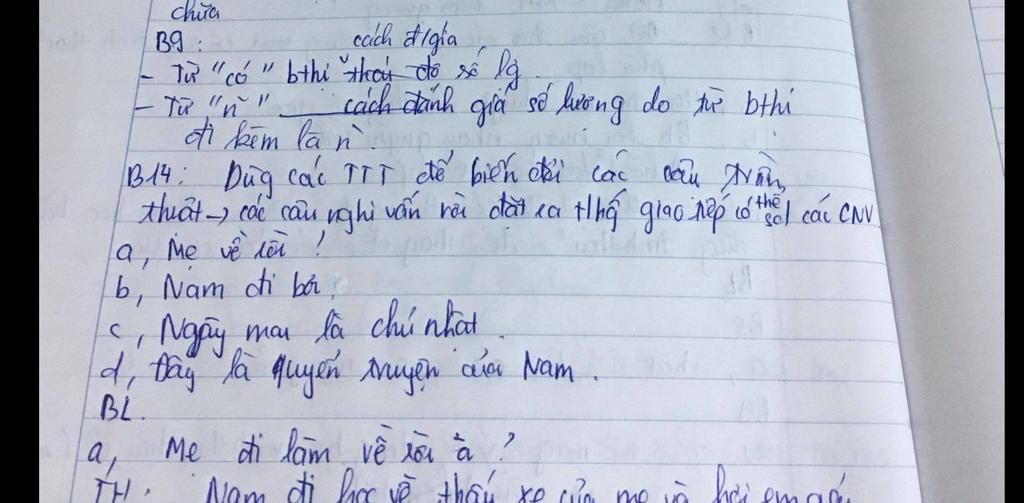 chữa
B9: cách đ/giá
- Từ "có" bthị thái độ số lg.
- Từ "n" cách đánh giá số lương do từ bthị
đi kèm là n
B14: Dùg các TTT để biến đổi các câu trần
thuật → các câu nghi vấn rồi đặt ra thg giao tiếp có thể sd các CNV
a, Mẹ về rồi!
b, Nam đi bơi
c, Ngày mai là chủ nhật.
d, Đây là quyển truyện của Nam.
BL.
a, Mẹ đi làm về rồi à?
TH: Nam đi học về thấy xe của mẹ và hỏi em gái